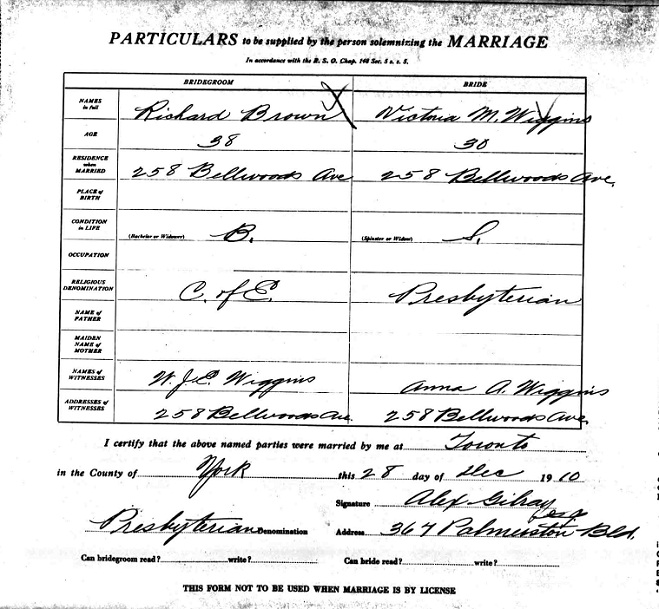 PARTICULARS to be supplied by the person solemnizing the MARRIAGE
In accordance with the R. S. O. Chap. 148 Sec. 5 s. s. 5.
BRIDEGROOM BRIDE
NAMES in full Richard Brown Victoria M. Wiggins
AGE 38 30
RESIDENCE when MARRIED 258 Bellwoods Ave 258 Bellwoods Ave.
PLACE OF BIRTH
CONDITION in LIFE (Bachelor or Widower) B. (Spinster or Widow) S.
OCCUPATION
RELIGIOUS DENOMINATION C. of E. Presbyterian
NAME OF FATHER
MAIDEN NAME OF MOTHER
NAMES OF WITNESSES W. J. E. Wiggins Anna A. Wiggins
ADDRESSES OF WITNESSES 258 Bellwoods Ave 258 Bellwoods Ave.
I certify that the above named parties were married by me at Toronto
in the County of York this 28 day of Dec 1910
Signature Alex Gilray
Presbyterian Denomination Address 367 Palmerston Bld.
Can bridegroom read? write? Can bride read? write?
THIS FORM NOT TO BE USED WHEN MARRIAGE IS BY LICENSE